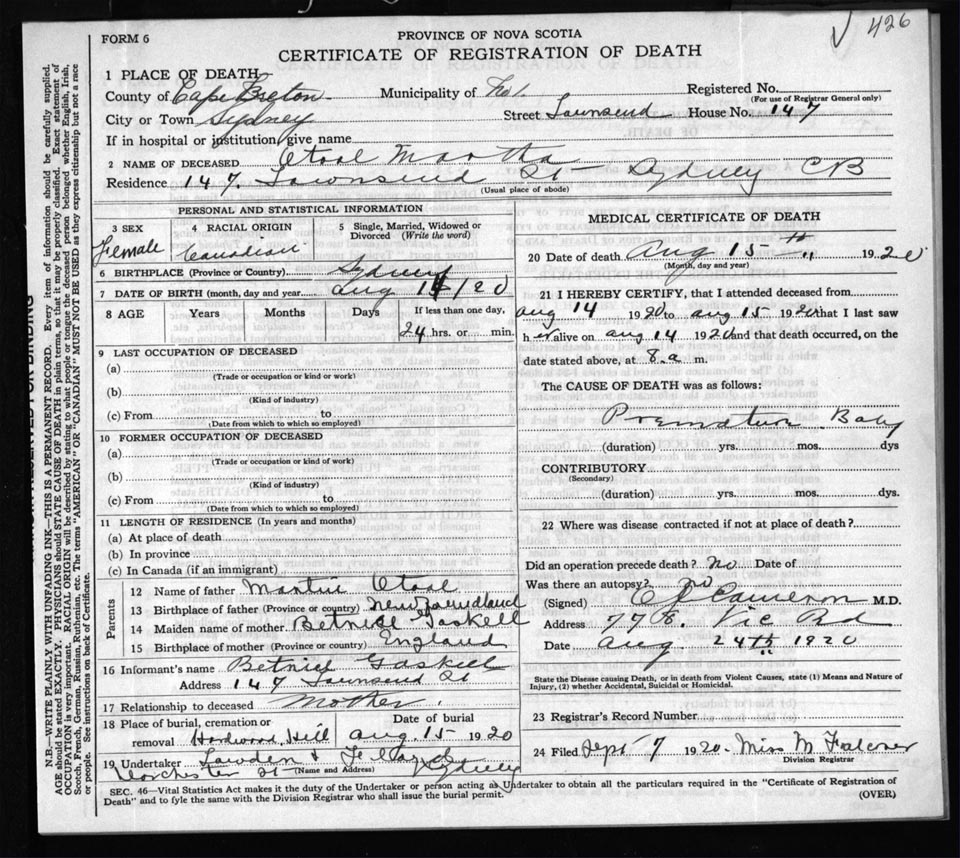 √ 426
FORM 6
PROVINCE OF NOVA SCOTIA
CERTIFICATE OF REGISTRATION OF DEATH
1 PLACE OF DEATH
County of Cape Breton Municipality of Registered No.
(For use of Registrar General only)
City or Town Sydney Street Townsend House No. 147
If in hospital or institution, give name
2 NAME OF DECEASED Otool Martha
Residence 147. Townsend St Sydney CB
(Usual place of abode)
PERSONAL AND STATISTICAL INFORMATION
3 SEX Female
4 RACIAL ORIGIN Canadian
5 Single, Married, Widowed or Divorced (Write the word)
6 BIRTHPLACE (Province or Country) Sydney
7 DATE OF BIRTH (month, day and year Aug 14/20
8 AGE Years Months Days If less than one day,
24 hrs. or min.
9 LAST OCCUPATION OF DECEASED
(a)
(Trade or occupation or kind or work)
(b)
(Kind of industry)
(c) From to
(Date from which to which so employed)
10 FORMER OCCUPATION OF DECEASED
(a)
(Trade or occupation or kind of work)
(b)
(Kind of industry)
(c) From to
(Date from which to which so employed)
11 LENGTH OF RESIDENCE (In years and months)
(a) At place of death
(b) In province
(c) In Canada (if an immigrant)
Parents
12 Name of father Martin Otool
13 Birthplace of father (Province or country) Newfoundland
14 Maiden name of mother Betnice Gaskell
15 Birthplace of mother (Province or country) England
16 Informant's name Betnice Gaskell
Address 147 Townsend St
17 Relationship to deceased Mother
18 Place of burial, cremation or removal Hardwood Hill
Date of burial Aug. 15 1920
19 Undertaker Lowden &
Dorchester St (Name and Address) Sydney
MEDICAL CERTIFICATE OF DEATH
20 Date of death Aug 15th 1920
(Month, day and year)
21 I HEREBY CERTIFY, that I attended deceased from
Aug 14 1920 to Aug 15 1920 that I last saw
her alive on Aug 14 1920 and that death occurred, on
date stated above, at 8.a m.
The CAUSE OF DEATH was as follows:
Premature Baby
(duration) yrs. mos. dys
CONTRIBUTORY
(Secondary)
(duration) yrs. mos. dys.
22 Where was disease contracted if not at place of death?
Did an operation precede death? No Date of
Was there an autopsy? no
(Signed) Cameron M.D.
Address 77 Vic Rd
Date Aug. 24th 1920
State the Disease causing Death, or in death from Violent Causes, state (1) Means and Nature of
Injury, (2) whether Accidental, Suicidal or Homicidal.
23 Registrar's Record Number
24 Filed Sept 7 1920 Miss M Falconer
Division Registrar
SEC. 46—Vital Statistics Act makes it the duty of the Undertaker or person acting as Undertaker to obtain all the particulars required in the "Certificate of Registration of
Death" and to fyle the same with the Division Registrar who shall issue the burial permit.
(OVER)
N.B.—WRITE PLAINLY WITH UNFADING INK—THIS IS A PERMANENT RECORD. Every item of information should be carefully supplied.
AGE should be stated EXACTLY. PHYSICIANS should STATE CAUSE OF DEATH in plain terms, so that it may be properly classified. Exact statement of
OCCUPATION is very important. RACIAL ORIGIN will be described by stating to what people or tongue the deceased person belonged whether English, Irish,
Scotch, French, German, Russian, Ruthenian, etc. The terms "AMERICAN" OR "CANADIAN" MUST NOT BE USED as they express citizenship but not a race
or people. See instructions on back of Certificate.